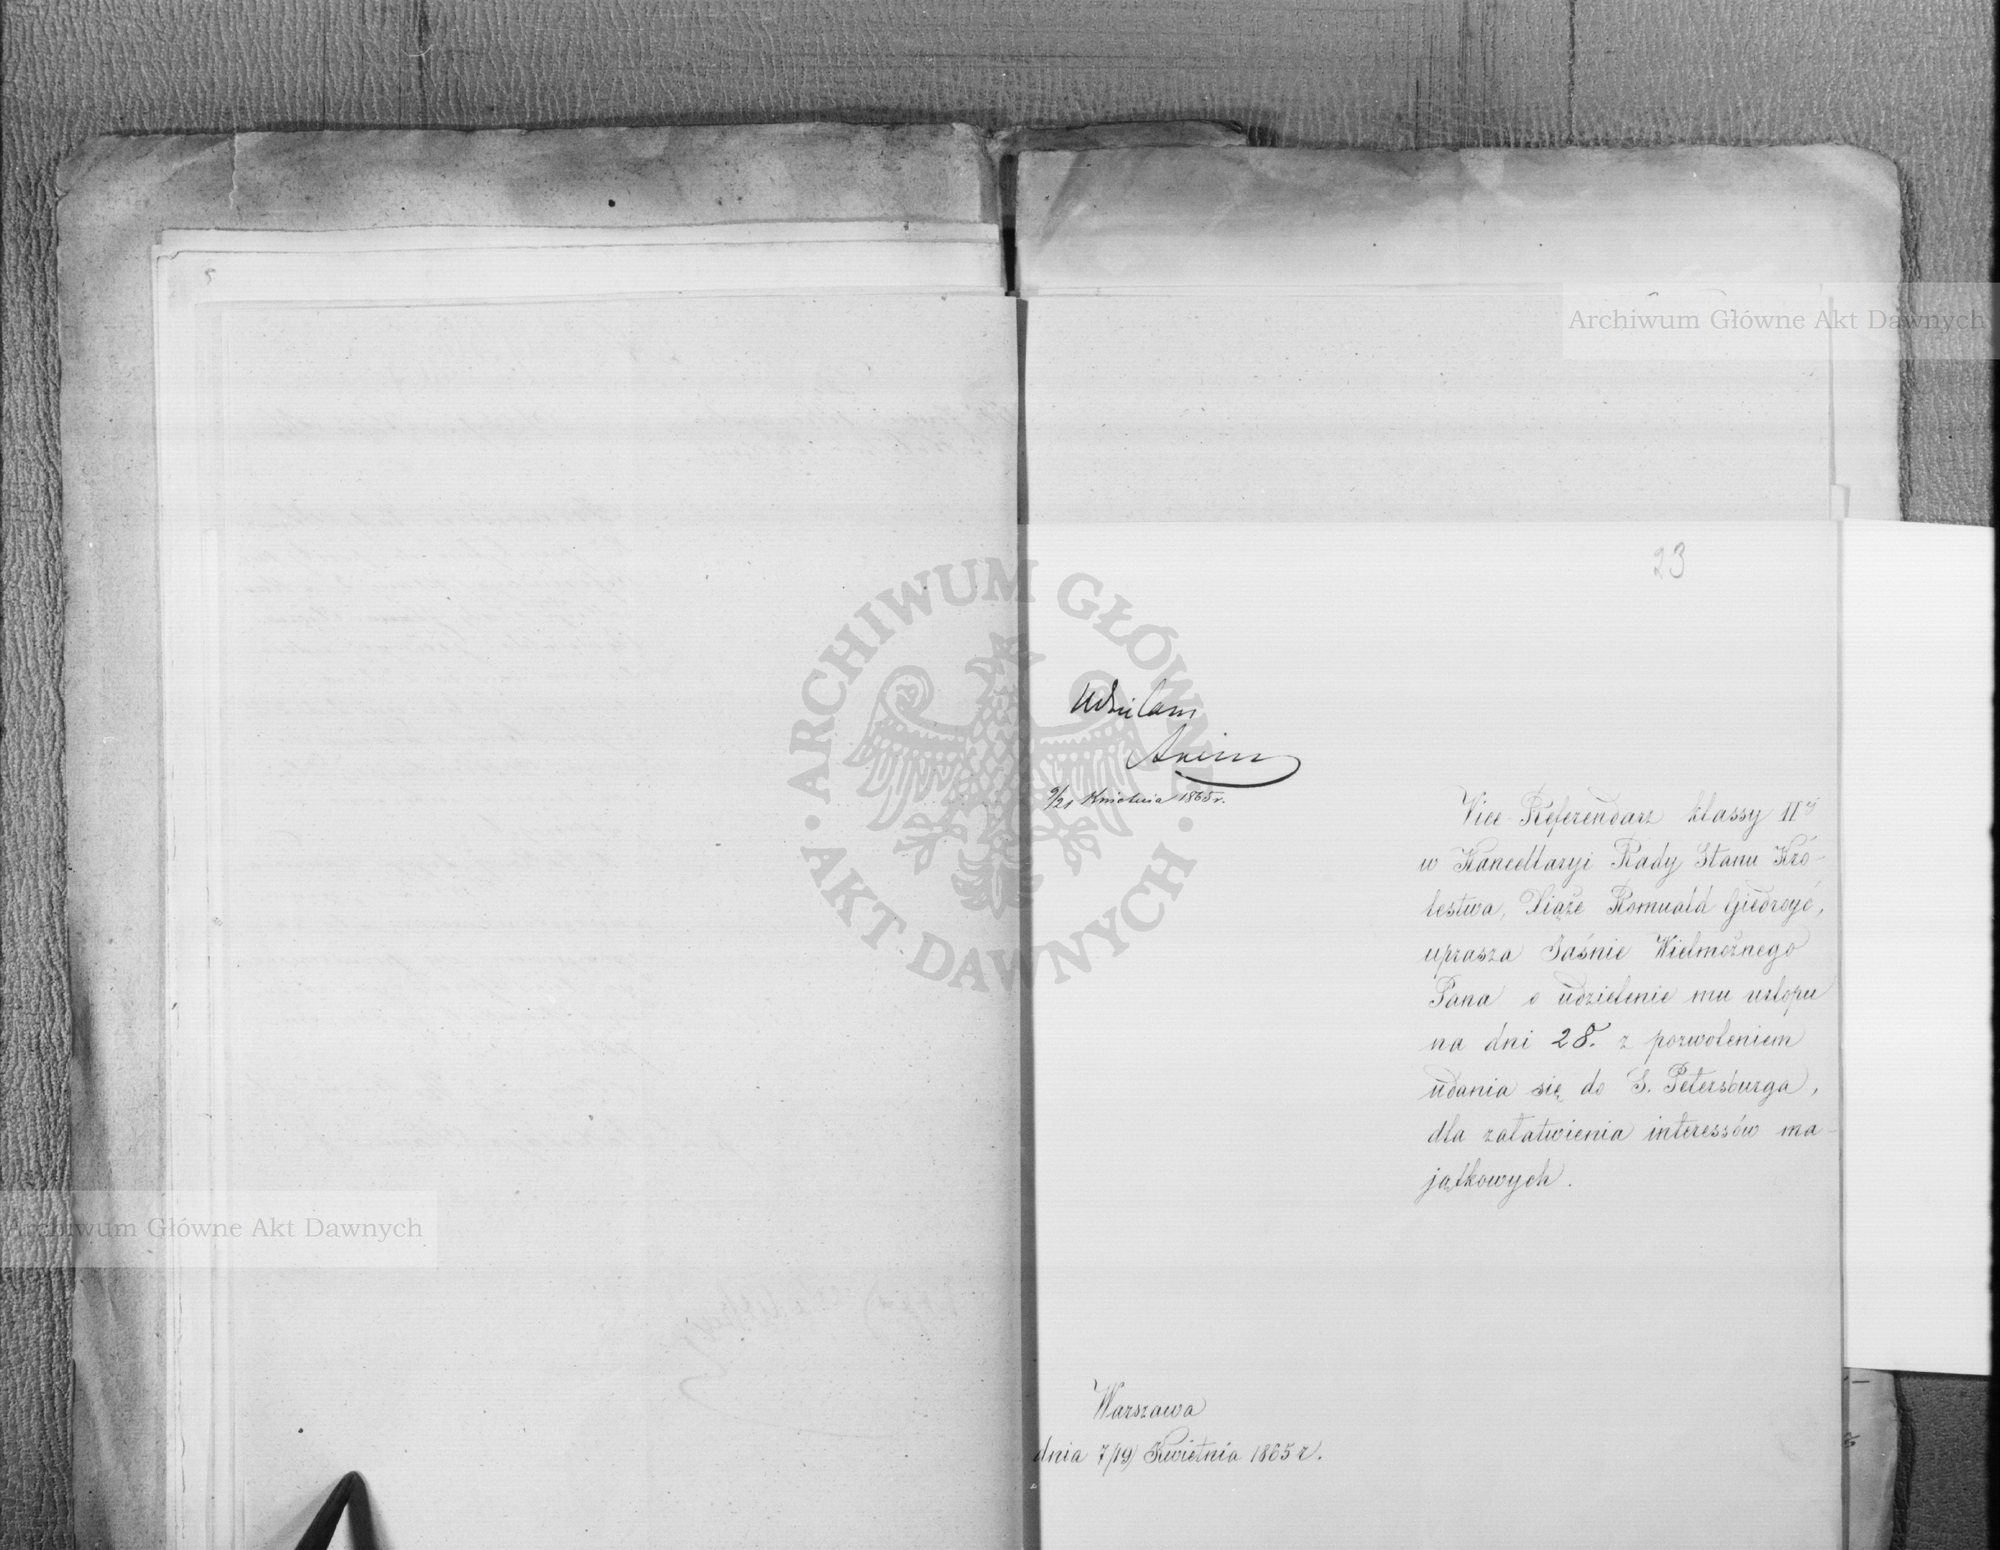 Archiwum Główne Akt Dawnych
23
ARCHIWUM GŁÓWNE
AKT DAWNYCH
Udzielam
9/21 Kwietnia 1865 r.
Vice Referendarz klassy IIej
w Kancellaryi Rady Stanu Kró-
lestwa, Xiąże Romuald Giedroyć,
uprasza Jaśnie Wielmożnego
Pana o udzielenie mu urlopu
na dni 28. z pozwoleniem
udania się do S. Petersburga,
dla załatwienia interessów ma-
jątkowych.
Archiwum Główne Akt Dawnych
Warszawa
dnia 7/19 Kwietnia 1865 r.